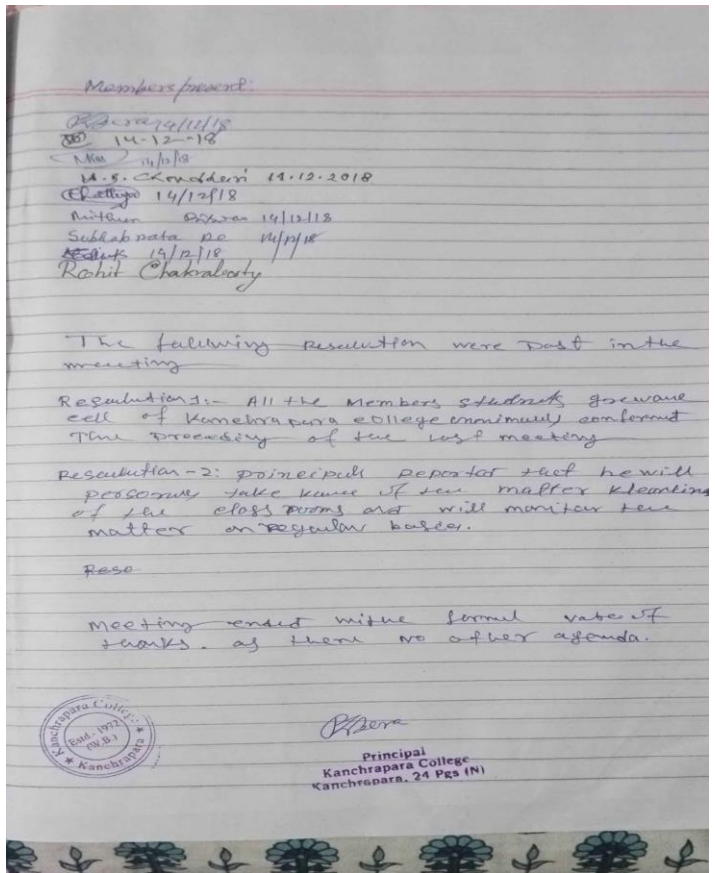 Members present:
14/12/18
14-12-18
14/12/18
M.S. Choudhuri 14.12.2018
14/12/18
Mithun Biswas 14/12/18
Subhabrata De 14/12/18
14/12/18
Rohit Chakraborty
The following Resolution were past in the
meeting
Resolution 1:- All the Members students
cell of Kanchrapara college conformed
The of the last meeting
Resolution-2: principal Reportat that he will
take of the matter
of the class rooms and will monitor the
matter on regular
Reso
Meeting ended formal vote of
thanks. as there No other agenda.
Kanchrapara College
Estd.-1972
(W.B.)
★ Kanchrapara ★
Principal
Kanchrapara College
Kanchrapara, 24 Pgs (N)